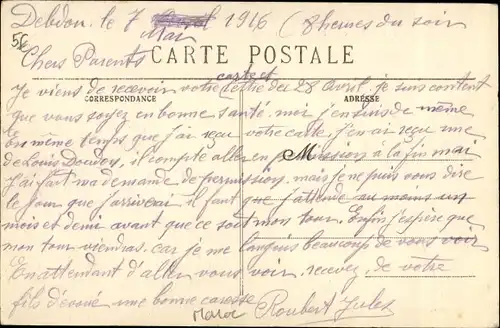 Debdou. le 7 Avril 1916 (8 heures du soir
Mai
56
Chers Parents
CARTE POSTALE
carte et
Je viens de recevoir votre lettre du 28 Avril, je suis content
CORRESPONDANCE
ADRESSE
que vous soyez en bonne santé. moi j'en suis de même
En même temps que j'ai reçu votre carte. j'en ai reçu une
de Louis Doudou, il compte aller en permission à la fin mai
M
J'ai fait ma demande de permission, mais je ne puis vous dire
le jour que j'arriverai il faut que j'attende au moins un
mois et demi avant que ce soit mon tour. Enfin j'espère que
mon tour viendras. car je me languis beaucoup de vous voir
En attendant d'aller vous voir, recevez, de votre
fils dévoué une bonne caresse
Roubert Jules
Maroc